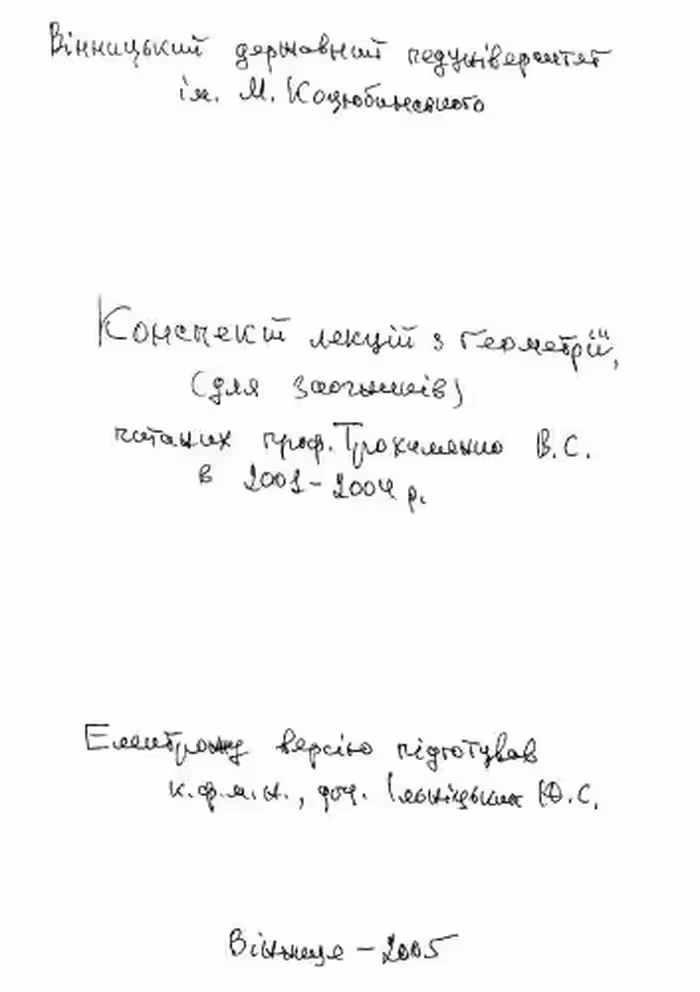 Вінницький державний педуніверситет
ім. М. Коцюбинського
Конспект лекцій з геометрії,
(для заочників)
читаних проф. Трохименко В.С.
в 2001-2004 р.
Електронну версію підготував
к.ф.м.н., доц. Ільніцький Ю.С.
Вінниця - 2005